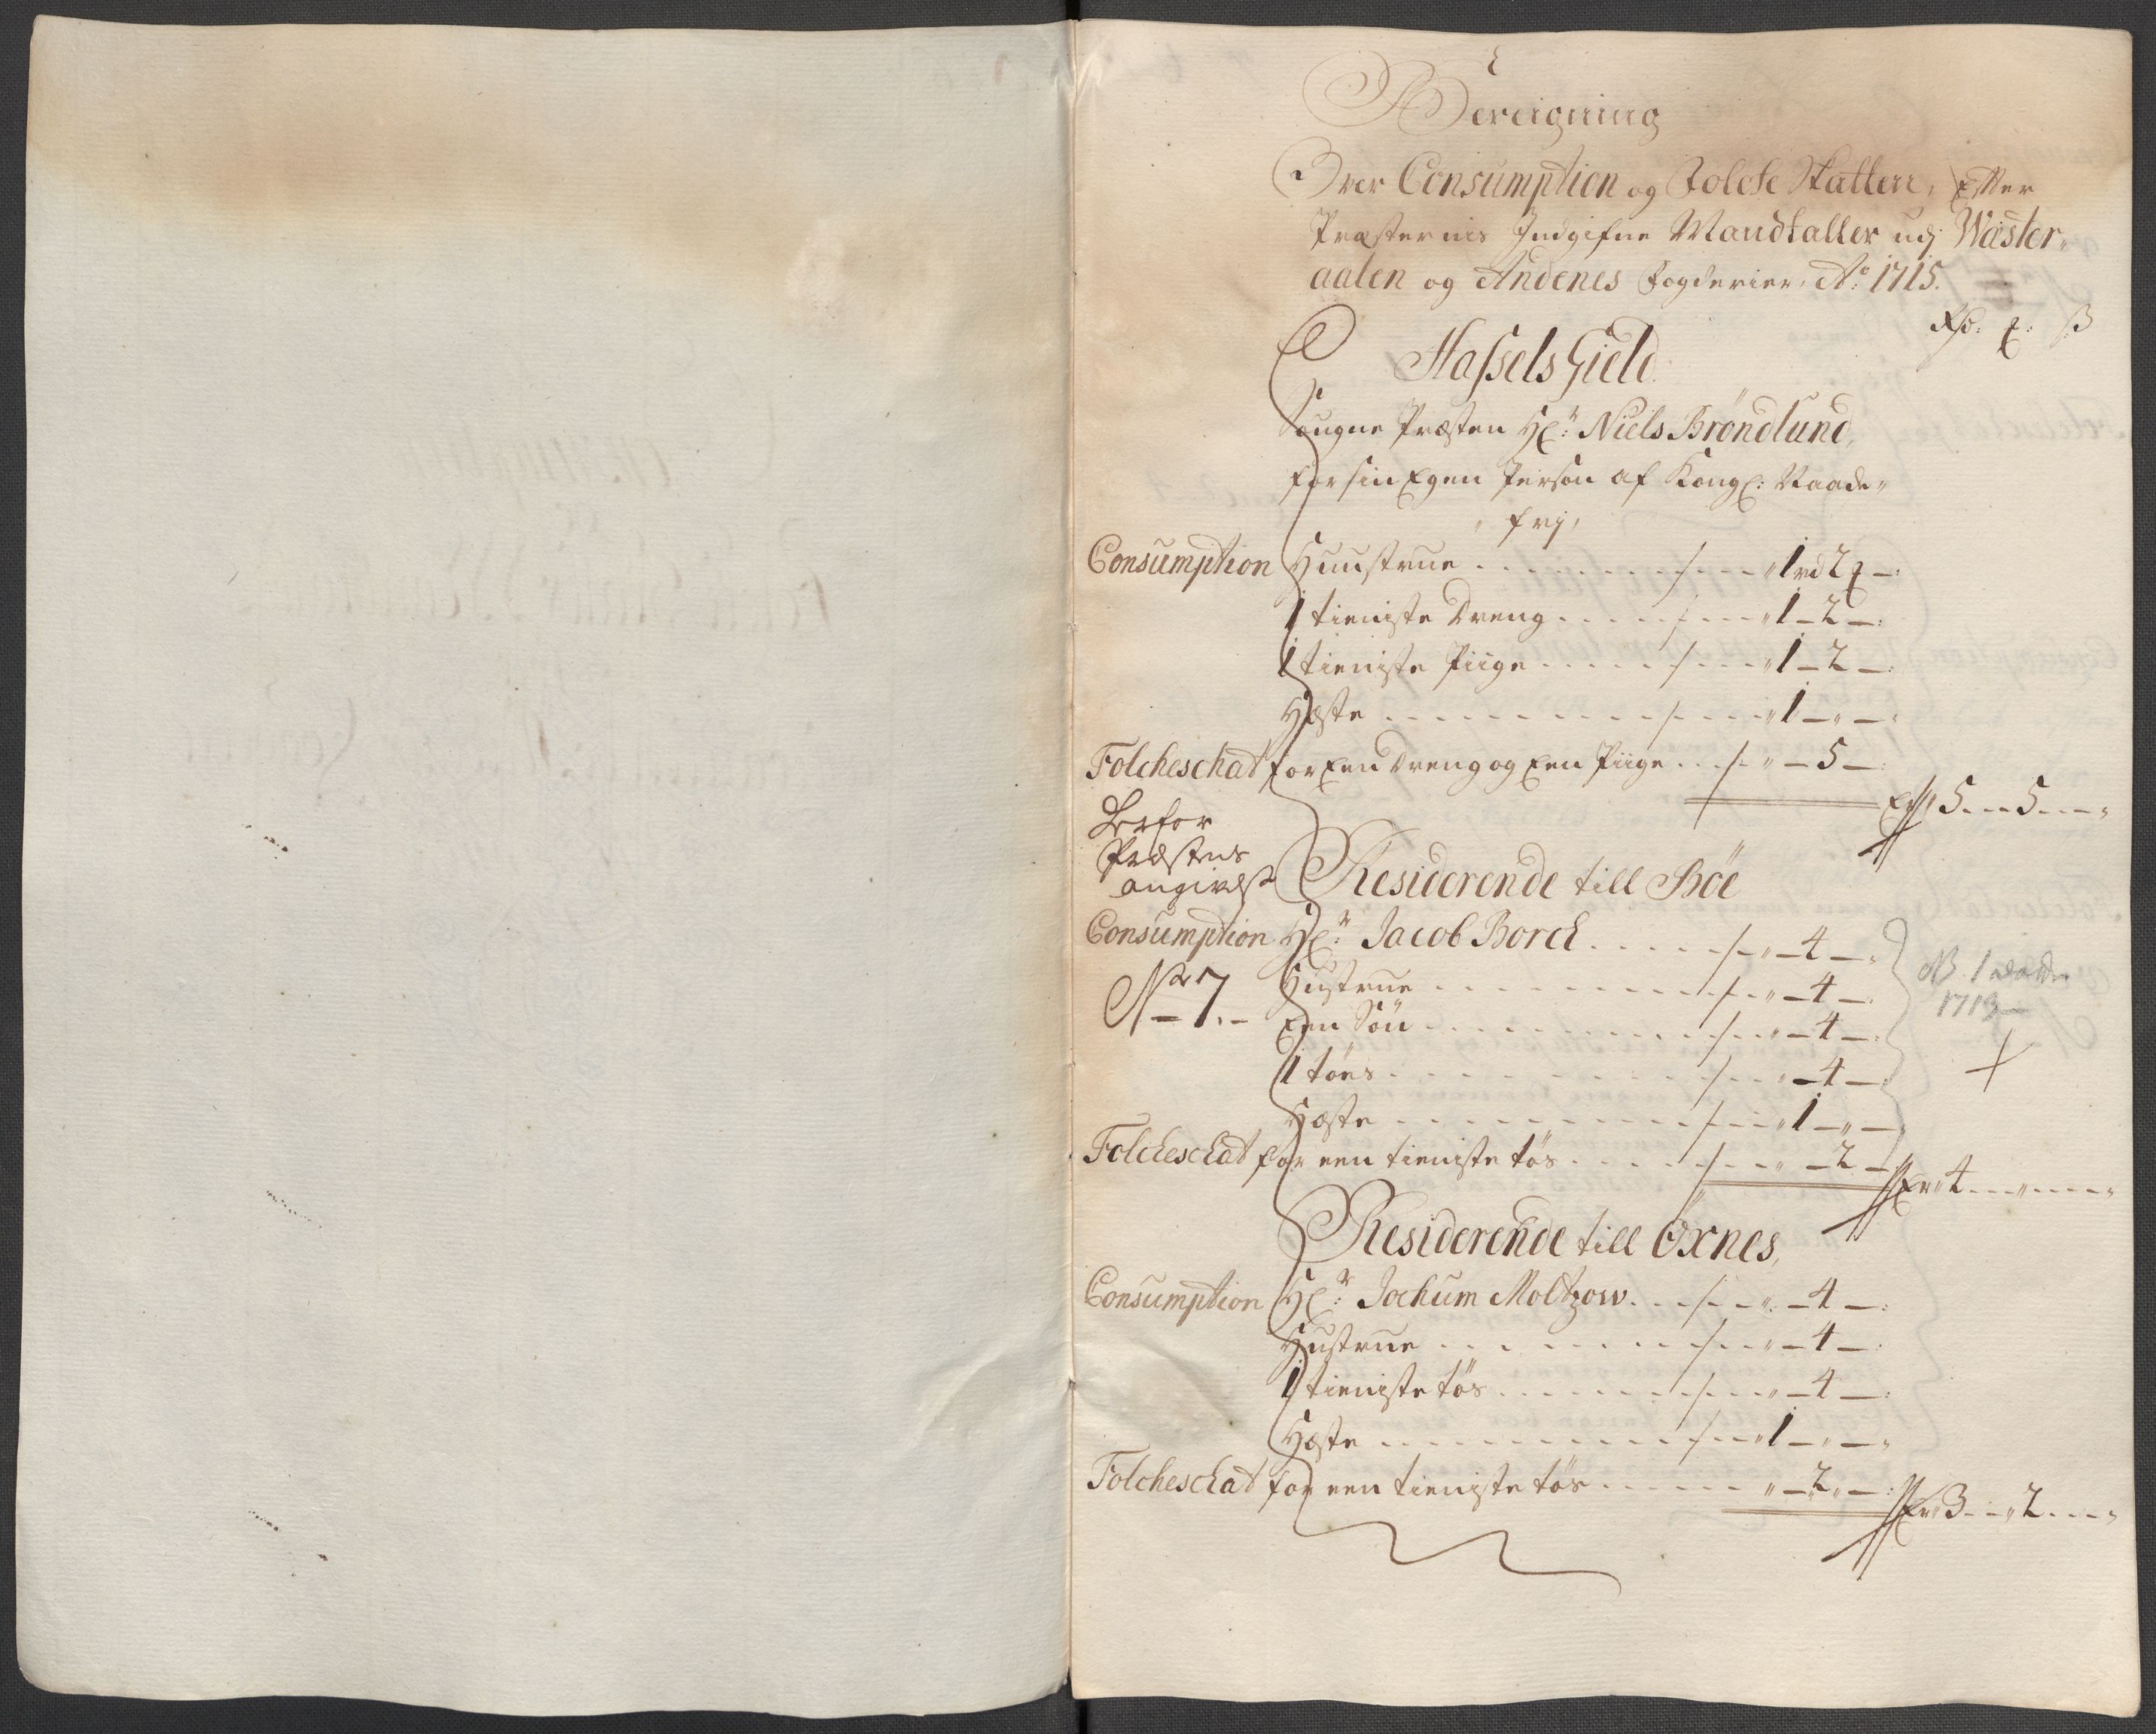 Bereigning
Over Consumption og Folche Skatten, Effter
Præsternis Indgifne Mandtaller udj Wæster„
aalen og Andenes Fogderier, Aº: 1715.
Rd: ß
Hassels Gield
Sougne Præsten Hr: Niels Bröndlund,
for sin Egen Person af Kongl: Naade„
frj,
Consumption Huustrue . . . . . . . . „ 1 rd 2 —:
1 tieniste Dreng . . . . . „ 1 — 2 —:
1 tieniste Piige . . . . . „ 1 — 2 —:
Hæste . . . . . . . . „ 1 — „ —:
Folcheschat for Een Dreng og Een Piige . . . „ — 5 —:
5 - - - 5 - - - „
Præstens
angivelse
Residerende till Böe
Consumption Hr: Jacob Borch . . . . . „ — 4 —:
No 7. — Hustrue . . . . . . . . „ — 4 —:
Een Sön . . . . . . . . „ — 4 —:
NB. 1
1713
1 töes . . . . . . . . „ — 4 —:
+
Hæste . . . . . . . . „ 1 — „ —:
Folcheschat for een tieniste tös . . . . . „ — 2 —:
4 - - - „ - - - „
Residerende till Öxnes,
Consumption Hr: Jochum Moltzow . . . . „ — 4 —:
Hustrue . . . . . . . . „ — 4 —:
1 tieniste tös . . . . . . . „ — 4 —:
Hæste . . . . . . . . „ 1 — „ —:
Folcheschat for een tieniste tös . . . . . . „ — 2 —:
3 - - - 2 - - - „